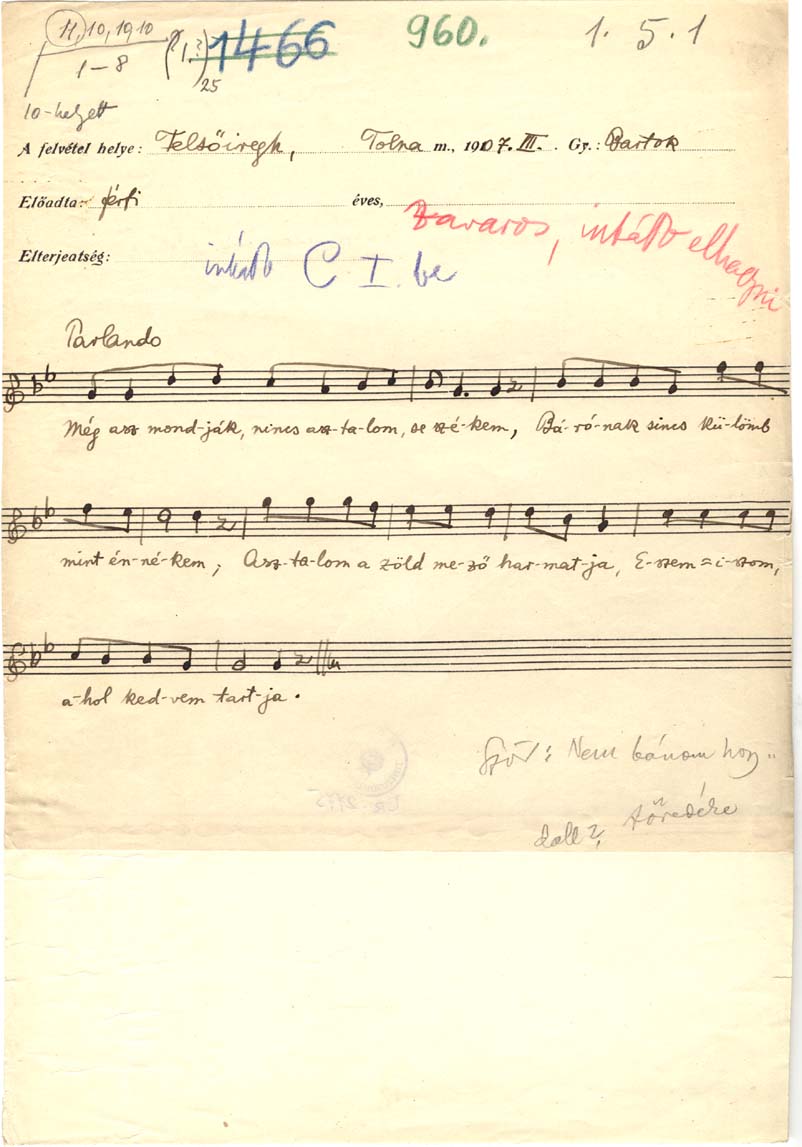 11, 10, 19, 10 (1.?) 1466 960. 1. 5. 1
1-8 25
10-helyett
A felvétel helye: Felsőiregh, Tolna m., 1907. III. Gy.: Bartok
Előadta: férfi éves,
zavaros, inkább elhagyni
Elterjedtség: inkább C I. be
Parlando
Még asz mond-ják, nincs asz-ta-lom, se szé-kem, Bá-ró-nak sincs kü-lömb
mint én-né-kem; Asz-ta-lom a zöld me-ző har-mat-ja, E-szem=i-szom,
a-hol ked-vem tart-ja.
Szöv: Nem bánom hogy
dall? töredéke